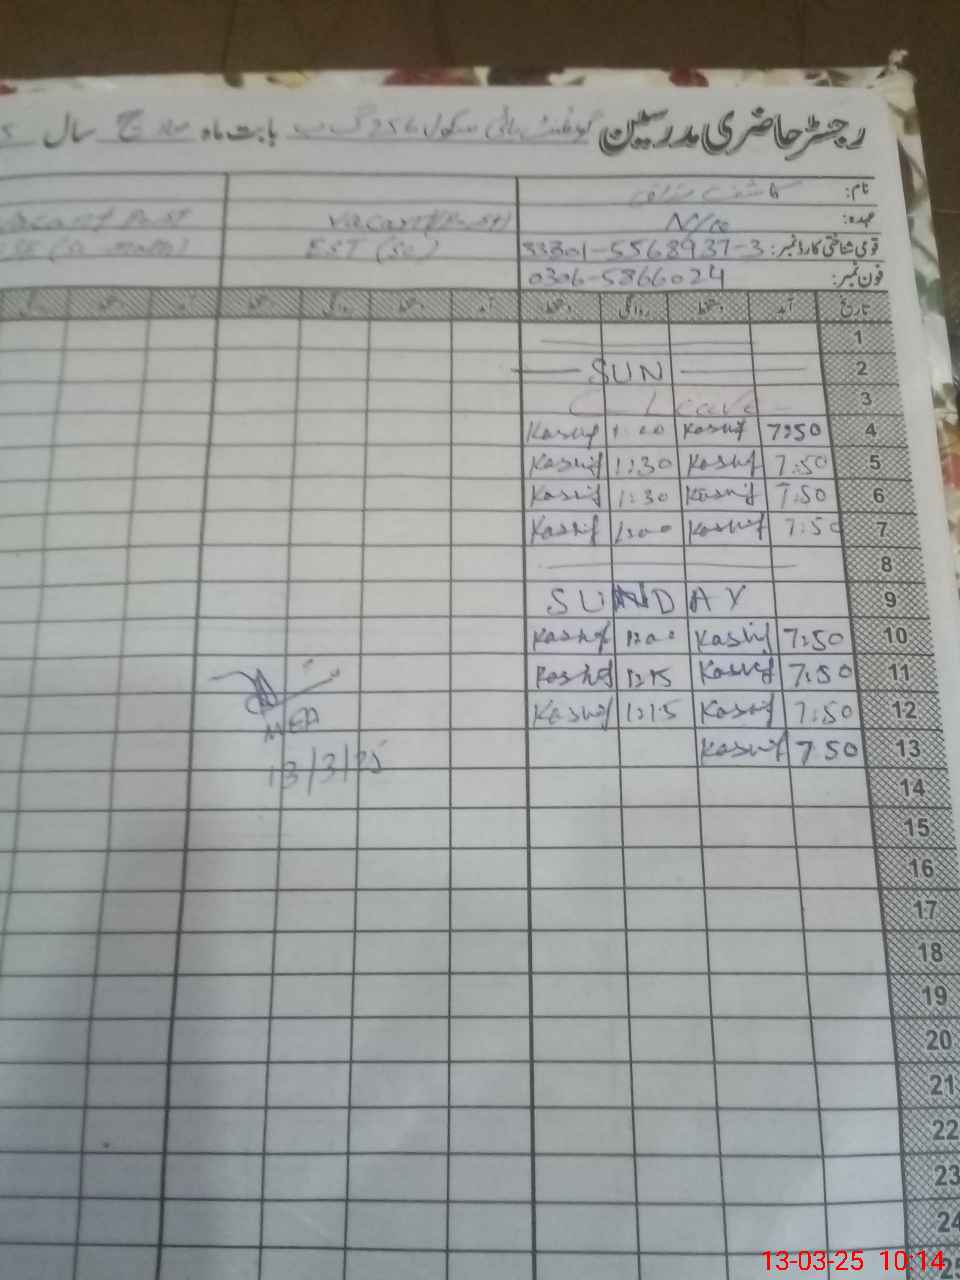 رجسٹر حاضری مدرسین گورنمنٹ ہائی سکول 256 گ ب بابت ماہ مارچ سال
نام: کاشف
عہدہ: N/Q Vacant (Post) Vacant Post
قومی شناختی کارڈ نمبر: 33301-5568937-3 EST (SC)
فون نمبر: 0306-5866024
تاریخ آمد دستخط روانگی دستخط آمد دستخط روانگی دستخط آمد دستخط روانگی
1
2 SUN
3 C Leave
4 7:50 Kashif 1:00 Kashif
5 7:50 Kashif 1:30 Kashif
6 7:50 Kashif 1:30 Kashif
7 7:50 Kashif 12:00 Kashif
8
9 SUNDAY
10 7:50 Kashif 1:00 Kashif
11 7:50 Kashif 1:15 Kashif
12 7:50 Kashif 1:15 Kashif
13 7 50 Kashif
MEA
13/3/25
14
15
16
17
18
19
20
21
22
23
24
25
13-03-25 10:14